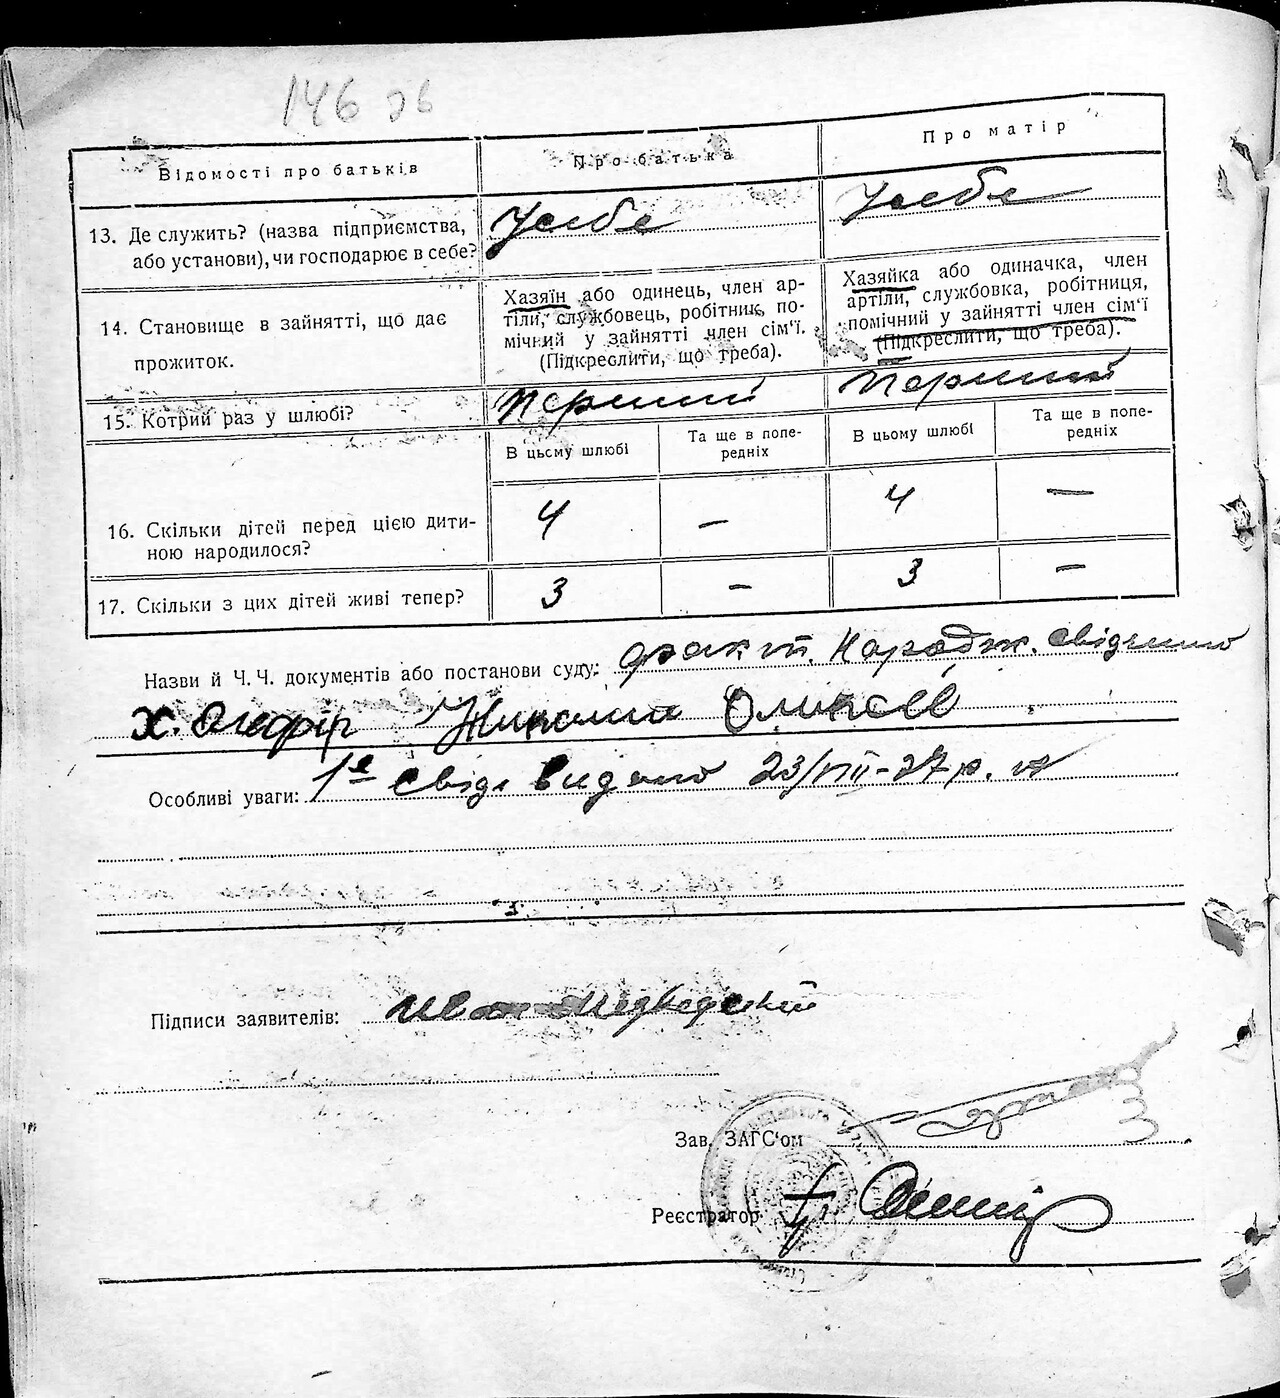 146 об
Відомості про батьків
Про батька
Про матір
13. Де служить? (назва підприємства,
або установи), чи господарює в себе?
У себе
У себе
14. Становище в зайнятті, що дає
прожиток.
Хазяїн або одинець, член ар-
тіли, службовець, робітник, по-
мічний у зайнятті член сім'ї.
(Підкреслити, що треба).
Хазяйка або одиначка, член
артіли, службовка, робітниця,
помічний у зайнятті член сім'ї
(Підкреслити, що треба).
15. Котрий раз у шлюбі?
Перший
Перший
В цьому шлюбі
Та ще в попе-
редніх
В цьому шлюбі
Та ще в попе-
редніх
16. Скільки дітей перед цією дити-
ною народилося?
4
—
4
—
17. Скільки з цих дітей живі тепер?
3
—
3
—
Назви й Ч. Ч. документів або постанови суду: факт. Народж. свідчило
Х.
Особливі уваги: 1е свід видано 23/VIII-27 р.
Підписи заявителів: Иван
Зав. ЗАГС'ом
Реєстратор